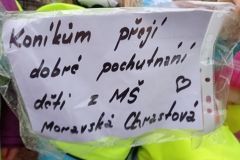 Koníkům přejí
dobré pochutnání
děti z MŠ
Moravská Chrastová